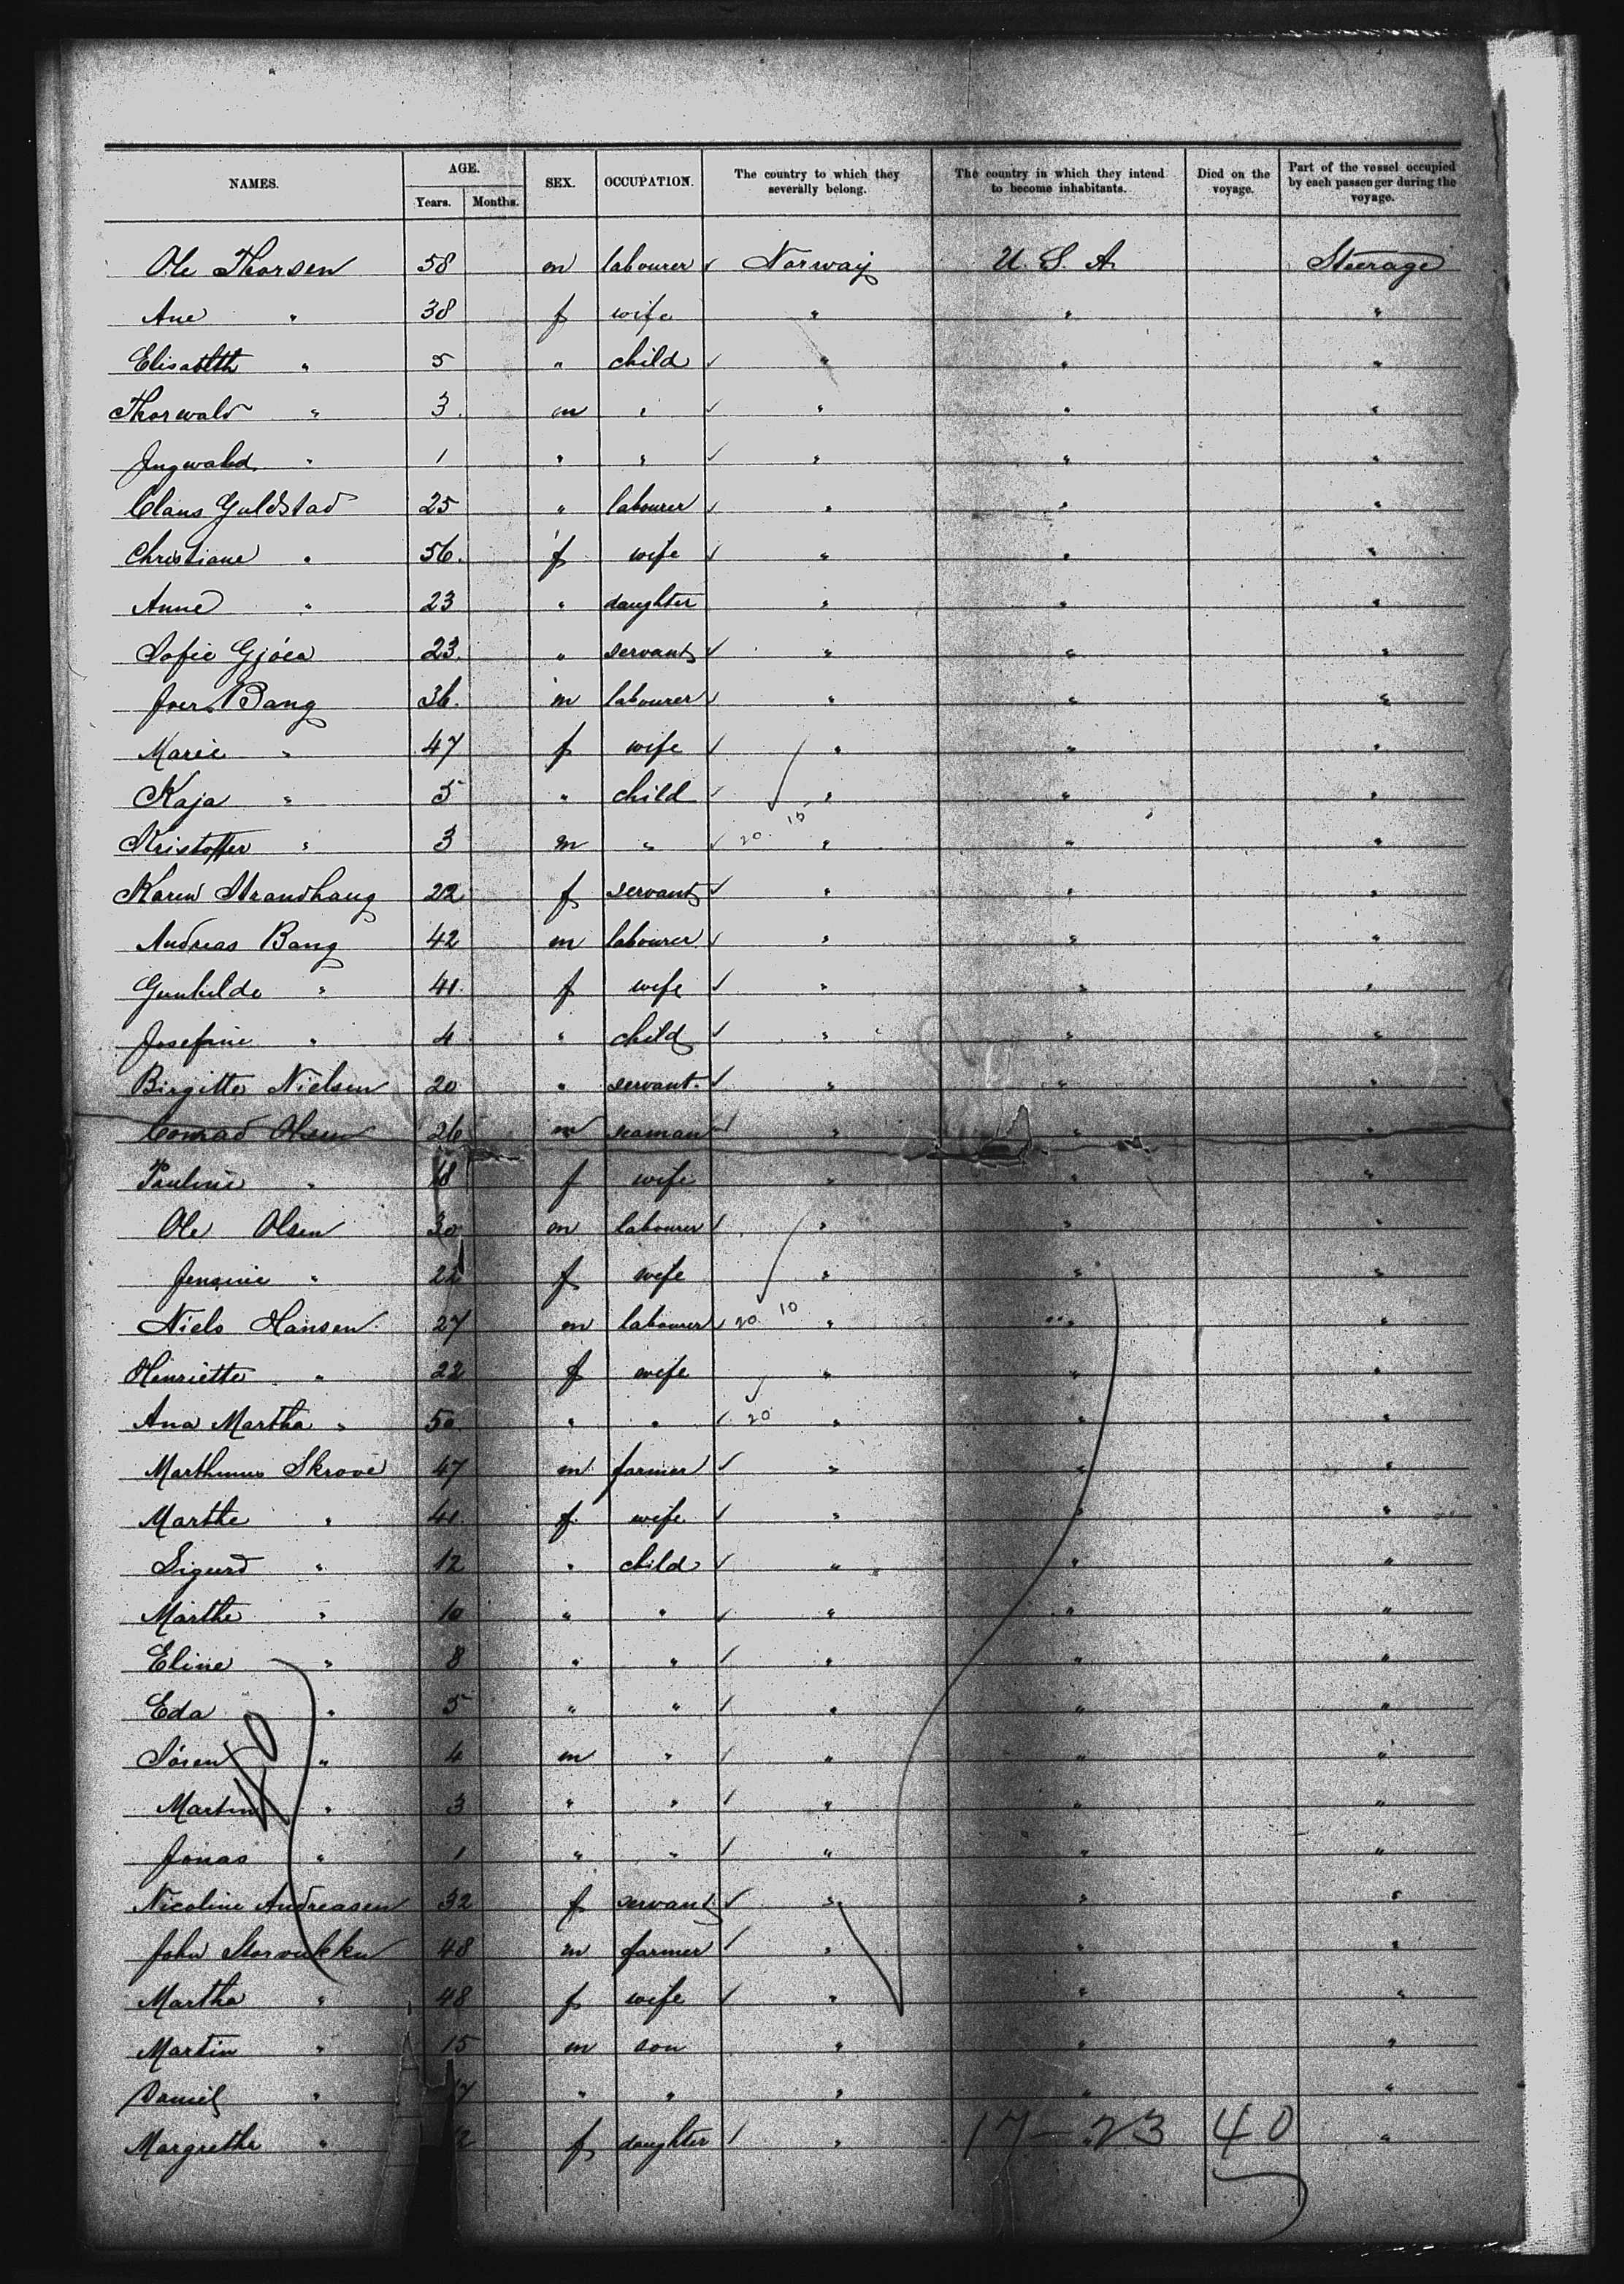 NAMES. AGE. SEX. OCCUPATION. The country to which they severally belong. The country in which they intend to become inhabitants. Died on the voyage. Part of the vessel occupied by each passenger during the voyage.
Years. Months.
Ole Thorsen 58 m labourer ✓ Norway U. S. A. Steerage
Ane " 38 f wife " " "
Elisabeth " 5 " child ✓ " " "
Thorwald " 3 m " ✓ " " "
Ingwald " 1 " " ✓ " " "
Claus Guldstad 25 " labourer ✓ " " "
Christiane " 56 f wife ✓ " " "
Anne " 23 " daughter " " "
Sofie Gjöea 23 " servant ✓ " " "
Iver Bang 36 m labourer ✓ " " "
Marie " 47 f wife ✓ " " "
Kaja " 5 " child ✓ " " "
Kristoffer " 3 m " ✓ 20 10 " " "
Karen Strandhaug 22 f servant ✓ " " "
Andreas Bang 42 m labourer ✓ " " "
Gunhilde " 41 f wife ✓ " " "
Josefine " 4 " child ✓ " " "
Birgitte Nielsen 20 " servant ✓ " " "
Conrad Olsen 26 m seaman ✓ " " "
Pauline " 18 f wife " " "
Ole Olsen 30 m labourer ✓ " " "
Jensine " 22 f wife " " "
Niels Hansen 27 m labourer ✓ 20 10 " " "
Henriette " 22 f wife " " "
Ana Martha " 50 " " ✓ 20 " " "
Marthinus Skrove 47 m farmer ✓ " " "
Marthe " 41 f wife ✓ " " "
Sigurd " 12 " child ✓ " " "
Marthe " 10 " " ✓ " " "
Eline " 8 " " ✓ " " "
Eda " 5 " " ✓ " " "
Sören " 4 m " ✓ " " "
Martin " 3 " " ✓ " " "
40
Jonas " 1 " " ✓ " " "
Nicoline Andreasen 32 f servant ✓ " " "
John 48 m farmer ✓ " " "
Martha " 48 f wife ✓ " " "
Martin " 15 m son " " "
Daniel " " " " " "
Margrethe " f daughter ✓ " " "
17 - 23 40